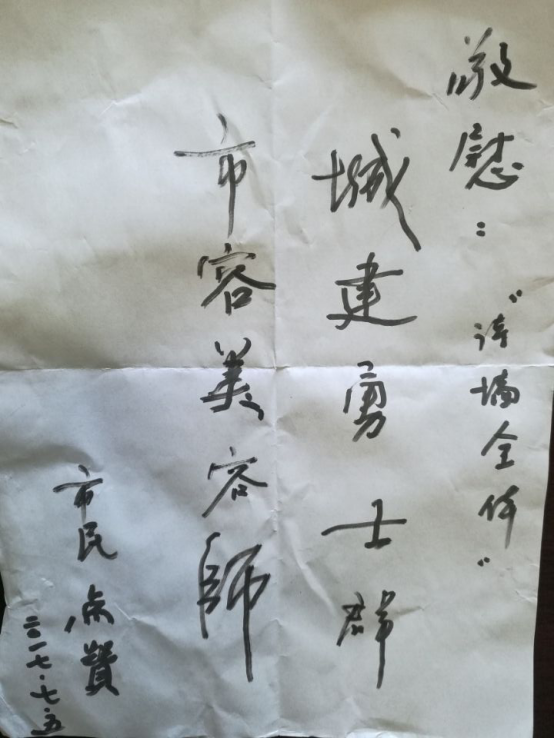 敬慰：“涛墙全体”
城建勇士群
市容美容師
市民点贊
二〇一七.七.五